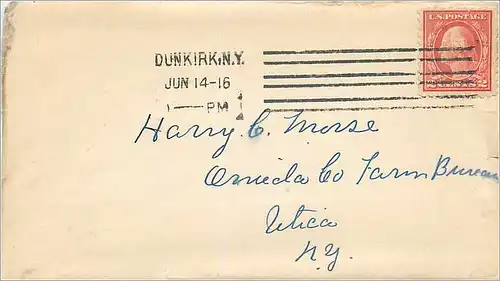 U.S. POSTAGE
2 CENTS 2
DUNKIRK, N.Y.
JUN 14-16
1 — PM
Harry C. Morse
Oneida Co Farm Bureau
Utica
N.Y.